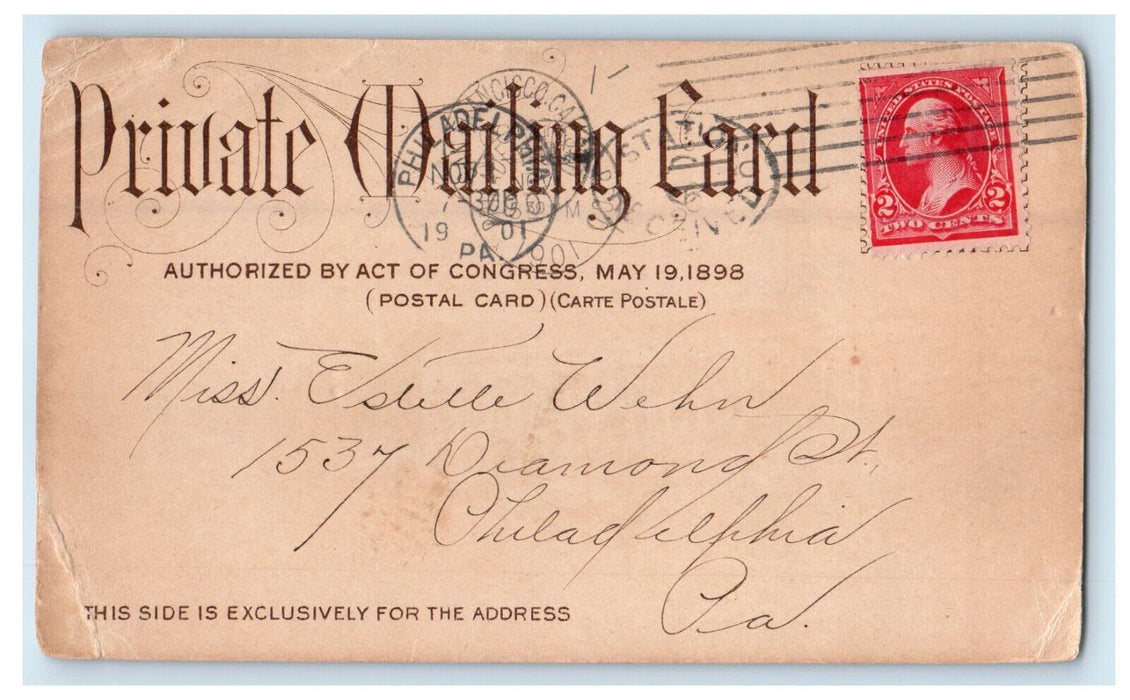 Private Mailing Card
AUTHORIZED BY ACT OF CONGRESS, MAY 19, 1898
(POSTAL CARD) (CARTE POSTALE)
PHILADELPHIA
NOV
19 01
PA.
STATION O
UNITED STATES POSTAGE
2 2
TWO CENTS
Miss. Estelle Wehn
1537 Diamond St.
Philadelphia
Pa.
THIS SIDE IS EXCLUSIVELY FOR THE ADDRESS